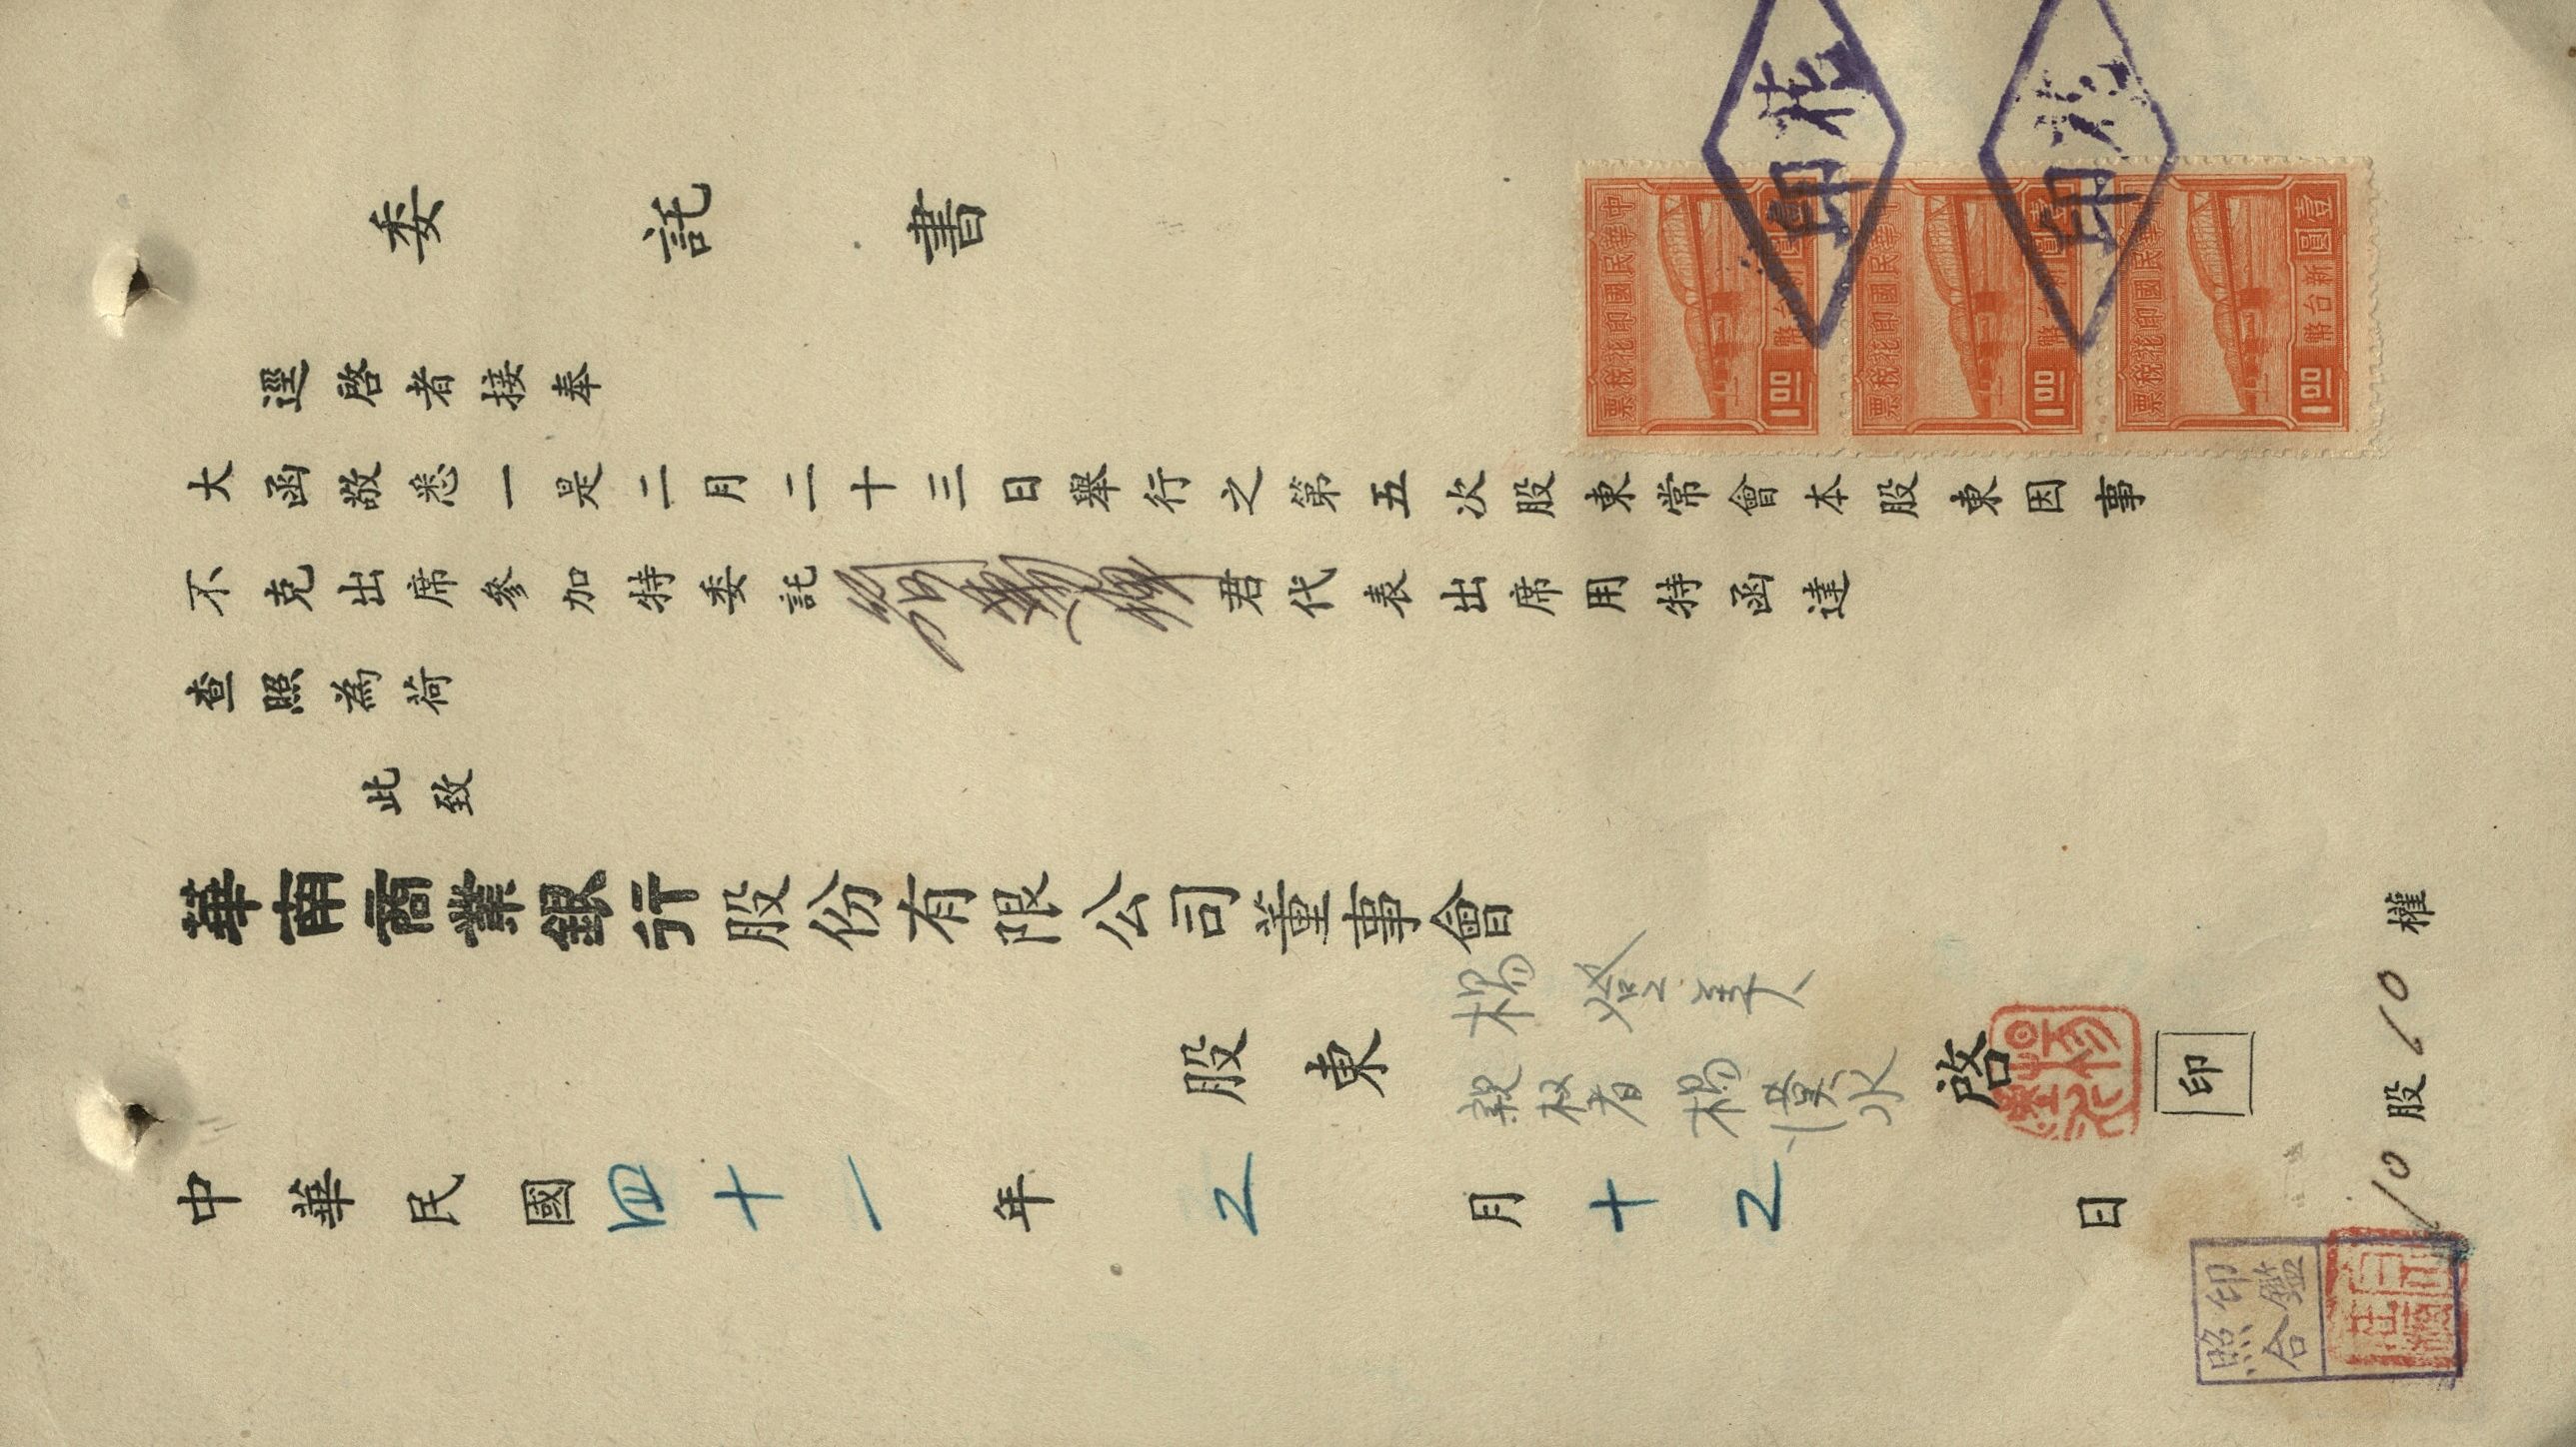 委託書
逕啓者接奉
大函敬悉一是二月二十三日舉行之第五次股東常會本股東因事
不克出席參加特委託君代表出席用特函達
查照為荷
此致
華南商業銀行股份有限公司董事會
股東 楊燈美
親权者 楊澄水
啓
印
中華民國四十一年2月十2日
10股10權
印鑑
照合
中華民國印花稅票
壹圓
新台幣
1.00
中華民國印花稅票
壹圓
新台幣
1.00
中華民國印花稅票
壹圓
新台幣
1.00
印花
印花